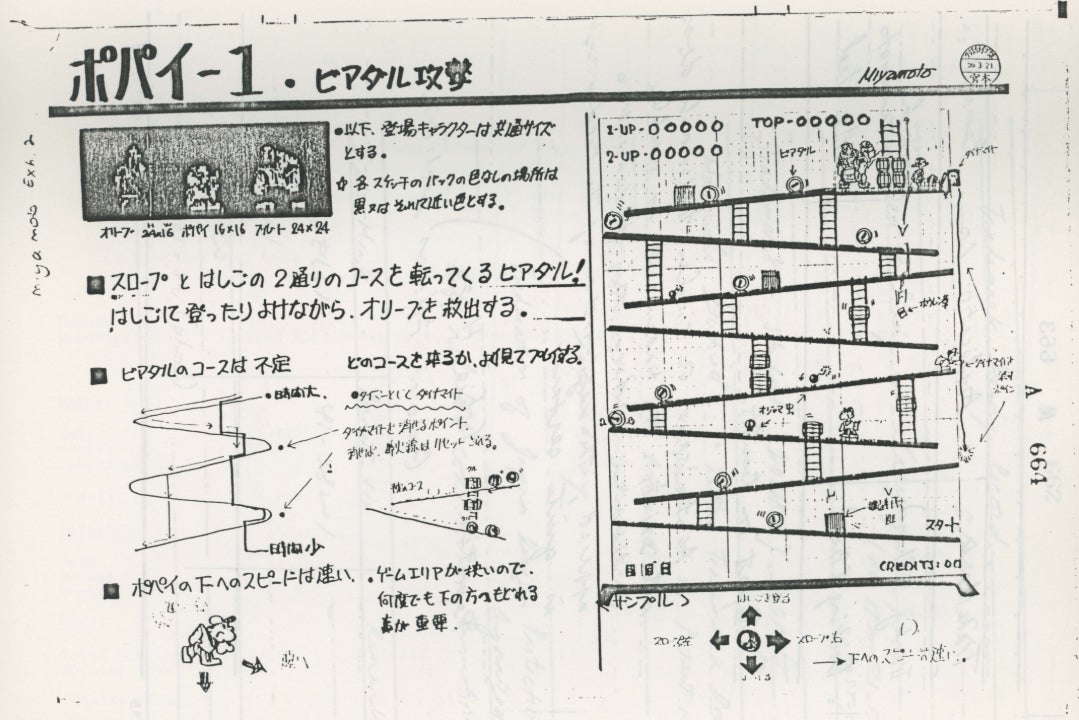 ポパイ-1・ビアダル攻撃
Miyamoto
宮本
miyamoto Exh 2
●以下、登場キャラクターは共通サイズ
とする。
黒又はそれに近い色とする。
オリーブ 24×16 ポパイ 16×16 ブルート 24×24
■スロープとはしごの2通りのコースを転ってくるビアダル!
はしごにて登ったりよけながら、オリーブを救出する。
■ビアダルのコースは不定
どのコースを来るか、よく見てプレイする。
●時間大
●タイマーとしてダイナマイト
ダイナマイトを消せるポイント
消せば、導火線はリセットされる。
時間少
■ポパイの下へのスピードは速い。
・ゲームエリアが狭いので、
何度でも下の方へもどれる
事が重要。
速い
1-UP-00000
TOP-00000
2-UP-00000
ビアダル
ダイナマイト
オジャマ虫
スタート
CREDIT:00
サンプル
スロープ左
スロープ右
下へのスピードは速い。
A
664